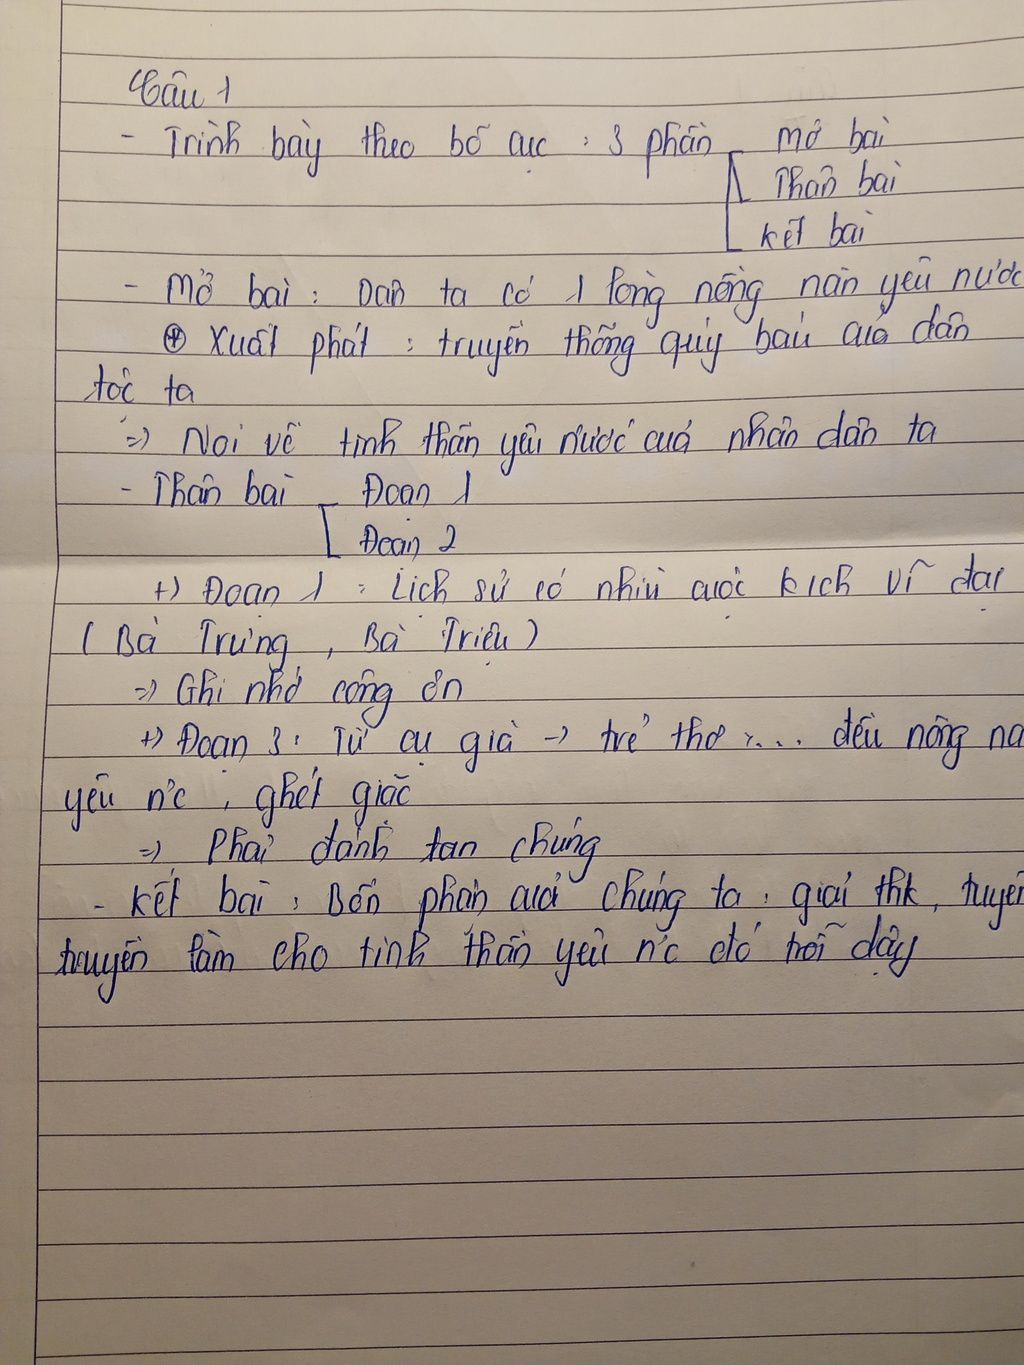 Câu 1
- Trình bày theo bố cục : 3 phần Mở bài
Thân bài
Kết bài
- Mở bài : Dân ta có 1 lòng nồng nàn yêu nước
⊕ Xuất phát : truyền thống quý báu của dân
tộc ta
=> Nói về tinh thần yêu nước của nhân dân ta
- Thân bài Đoạn 1
Đoạn 2
+) Đoạn 1 : Lịch sử có nhiều cuộc kịch vĩ đại
( Bà Trưng , Bà Triệu )
=> Ghi nhớ công ơn
+) Đoạn 3 : Từ cụ già -> trẻ thơ .... đều nồng nà
yêu nc , ghét giặc
=> Phải đánh tan chúng
- Kết bài : Bổn phận của chúng ta : giải thk , tuyên
truyền làm cho tinh thần yêu nc đó trỗi dậy